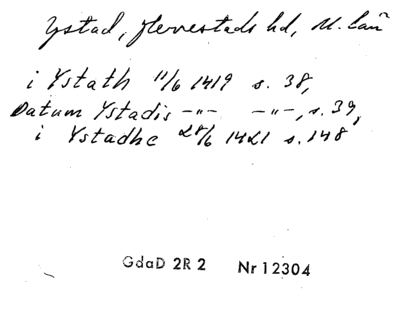 Ystad, Herrestads hd, M. län
i Ystath 11/6 1419 s. 38,
Datum Ystadis –"– –"–, s. 39,
i Ystadhe 28/6 1421 s. 148
GdaD 2R 2 Nr 12304